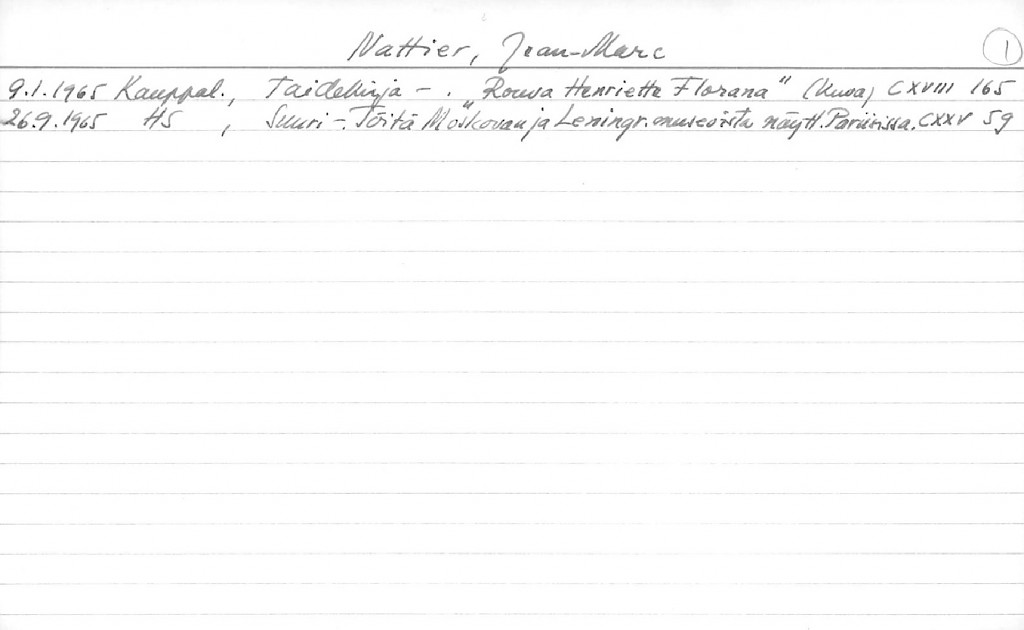 Nattier, Jean-Marc
1
9.1.1965 Kauppal., Taidekirja - . "Rouva Henriette Florana" (kuva) CXVIII 165
26.9.1965 HS , Suuri -. Töitä Moskovan ja Leningr. museoista näytt. Pariisissa. CXXV 59